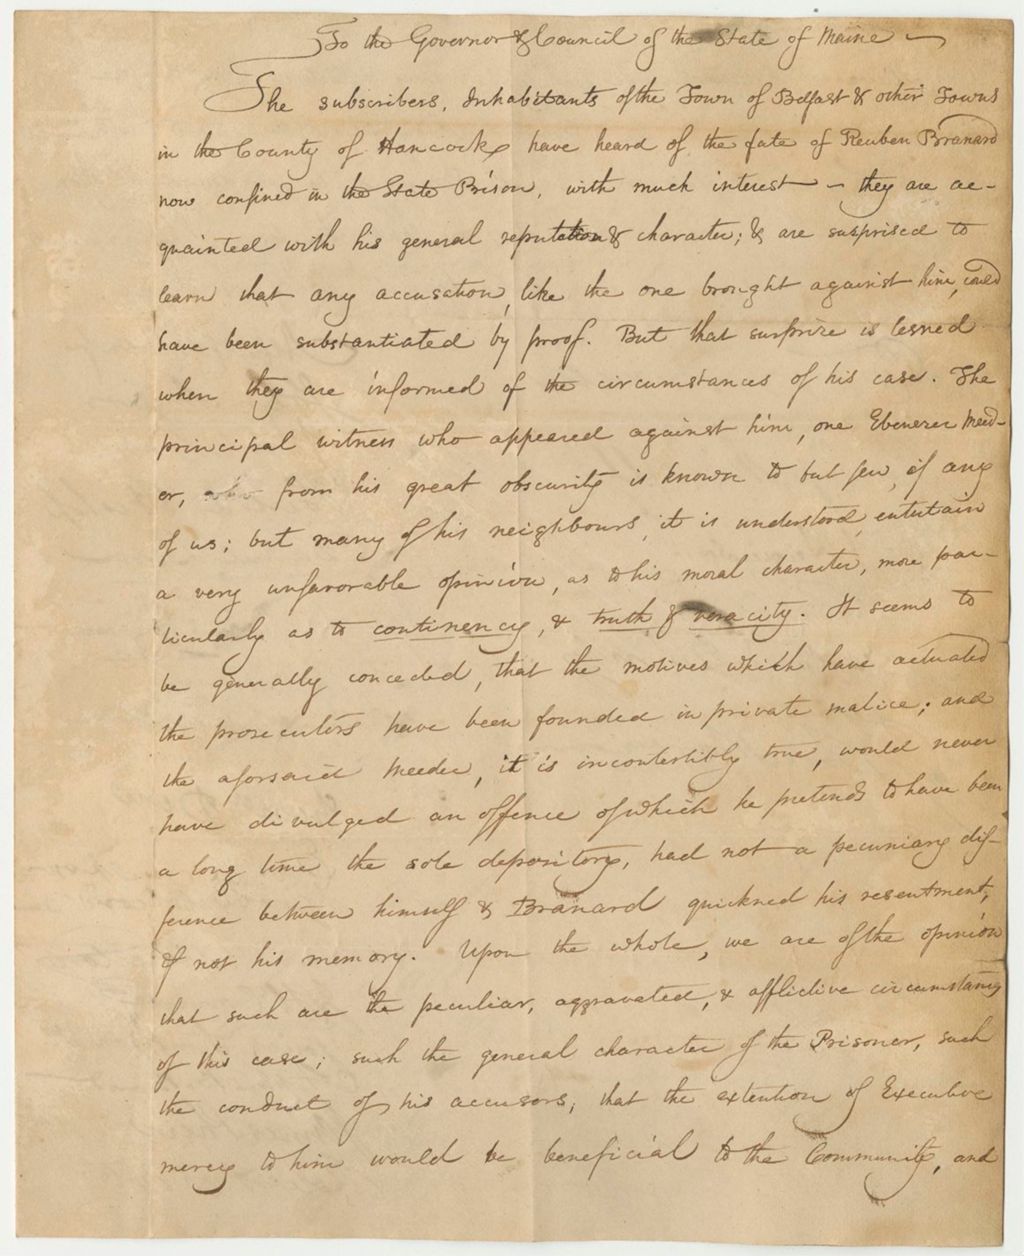 To the Governor & Council of the State of Maine —
The subscribers, Inhabitants of the Town of Belfast & other Towns
in the County of Hancock, have heard of the fate of Reuben Branard
now confined in the State Prison, with much interest — they are ac-
quainted with his general reputation & character; & are surprised to
learn that any accusation, like the one brought against him, could
have been substantiated by proof. But that surprize is lesned
when they are informed of the circumstances of his case. The
principal witness who appeared against him, one Ebenezer Meed-
er, who from his great obscurity is known to but few, if any
of us; but many of his neighbours, it is understood, entertain
a very unfavorable opinion, as to his moral character, more par-
ticularly as to continency, & truth & veracity. It seems to
be generally conceded, that the motives which have actuated
the prosecutors have been founded in private malice; and
the aforsaid Meeder, it is incontestibly true, would never
have divulged an offence of which he pretends to have been
a long time the sole depository, had not a pecuniary dif-
ference between himself & Branard quickned his resentment,
if not his memory. Upon the whole, we are of the opinion
that such are the peculiar, aggravated, & afflictive circumstances
of this case; such the general character of the Prisoner, such
the conduct of his accusors, that the extention of Executive
mercy to him would be beneficial to the Community, and